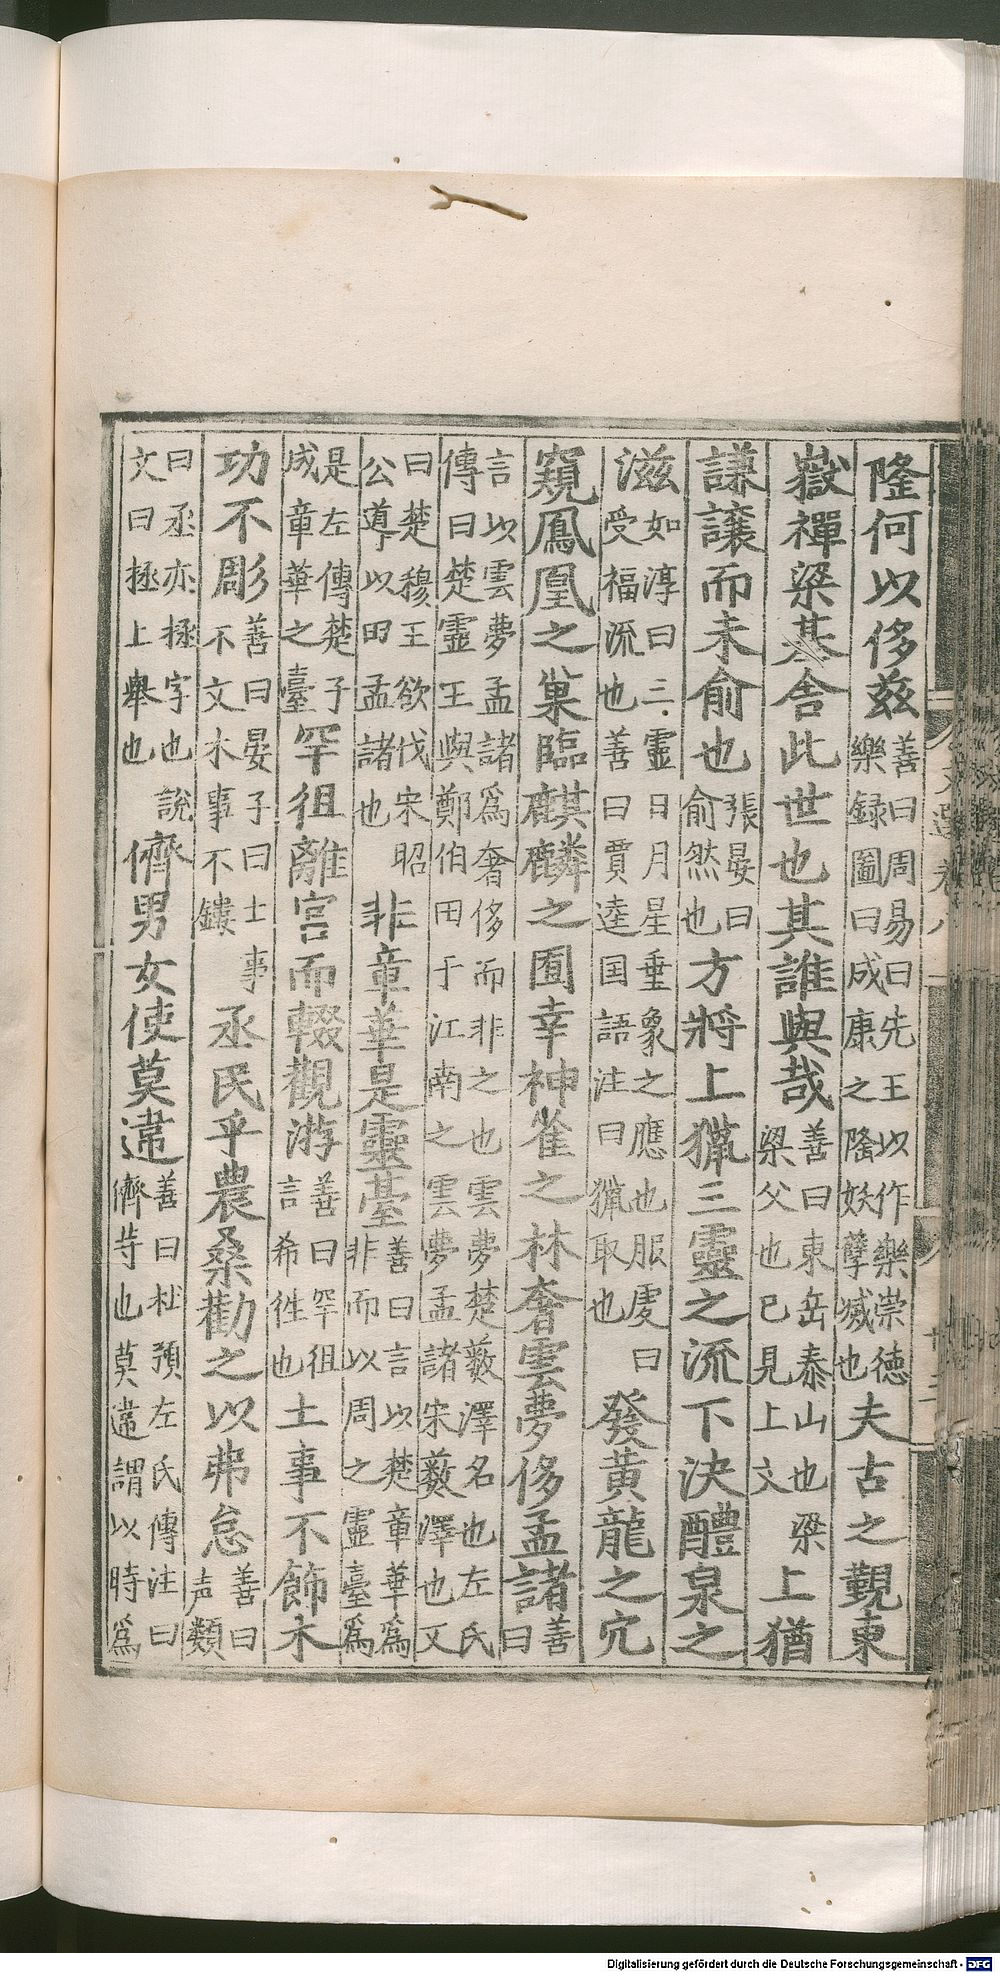 隆何以侈茲善曰周易曰先王以作樂崇德樂錄圖曰成康之隆妖孽滅也夫古之觀東
嶽禪梁基舍此世也其誰與哉善曰東岳泰山也梁梁父也已見上文上猶
謙讓而未俞也張晏曰俞然也方將上獵三靈之流下決醴泉之
滋如淳曰三靈日月星垂象之應也服虔曰受福流也善曰賈逵國語注曰獵取也發黃龍之穴
窺鳳凰之巢臨麒麟之囿幸神雀之林奢雲夢侈孟諸善曰
言以雲夢孟諸爲奢侈而非之也雲夢楚藪澤名也左氏傳曰楚靈王與鄭伯田于江南之雲夢孟諸宋藪澤也又
曰楚穆王欲伐宋昭公道以田孟諸也非章華是靈臺善曰言以楚章華爲非而以周之靈臺爲
是左傳楚子成章華之臺罕徂離宮而輟觀游善曰罕徂言希徃也土事不飾木
功不彫善曰晏子曰士事不文木事不鏤丞民乎農桑勸之以弗怠善曰声類
曰丞亦拯字也說文曰拯上舉也儕男女使莫違善曰杜預左氏傳注曰儕等也莫違謂以時爲
Digitalisierung gefördert durch die Deutsche Forschungsgemeinschaft - DFG